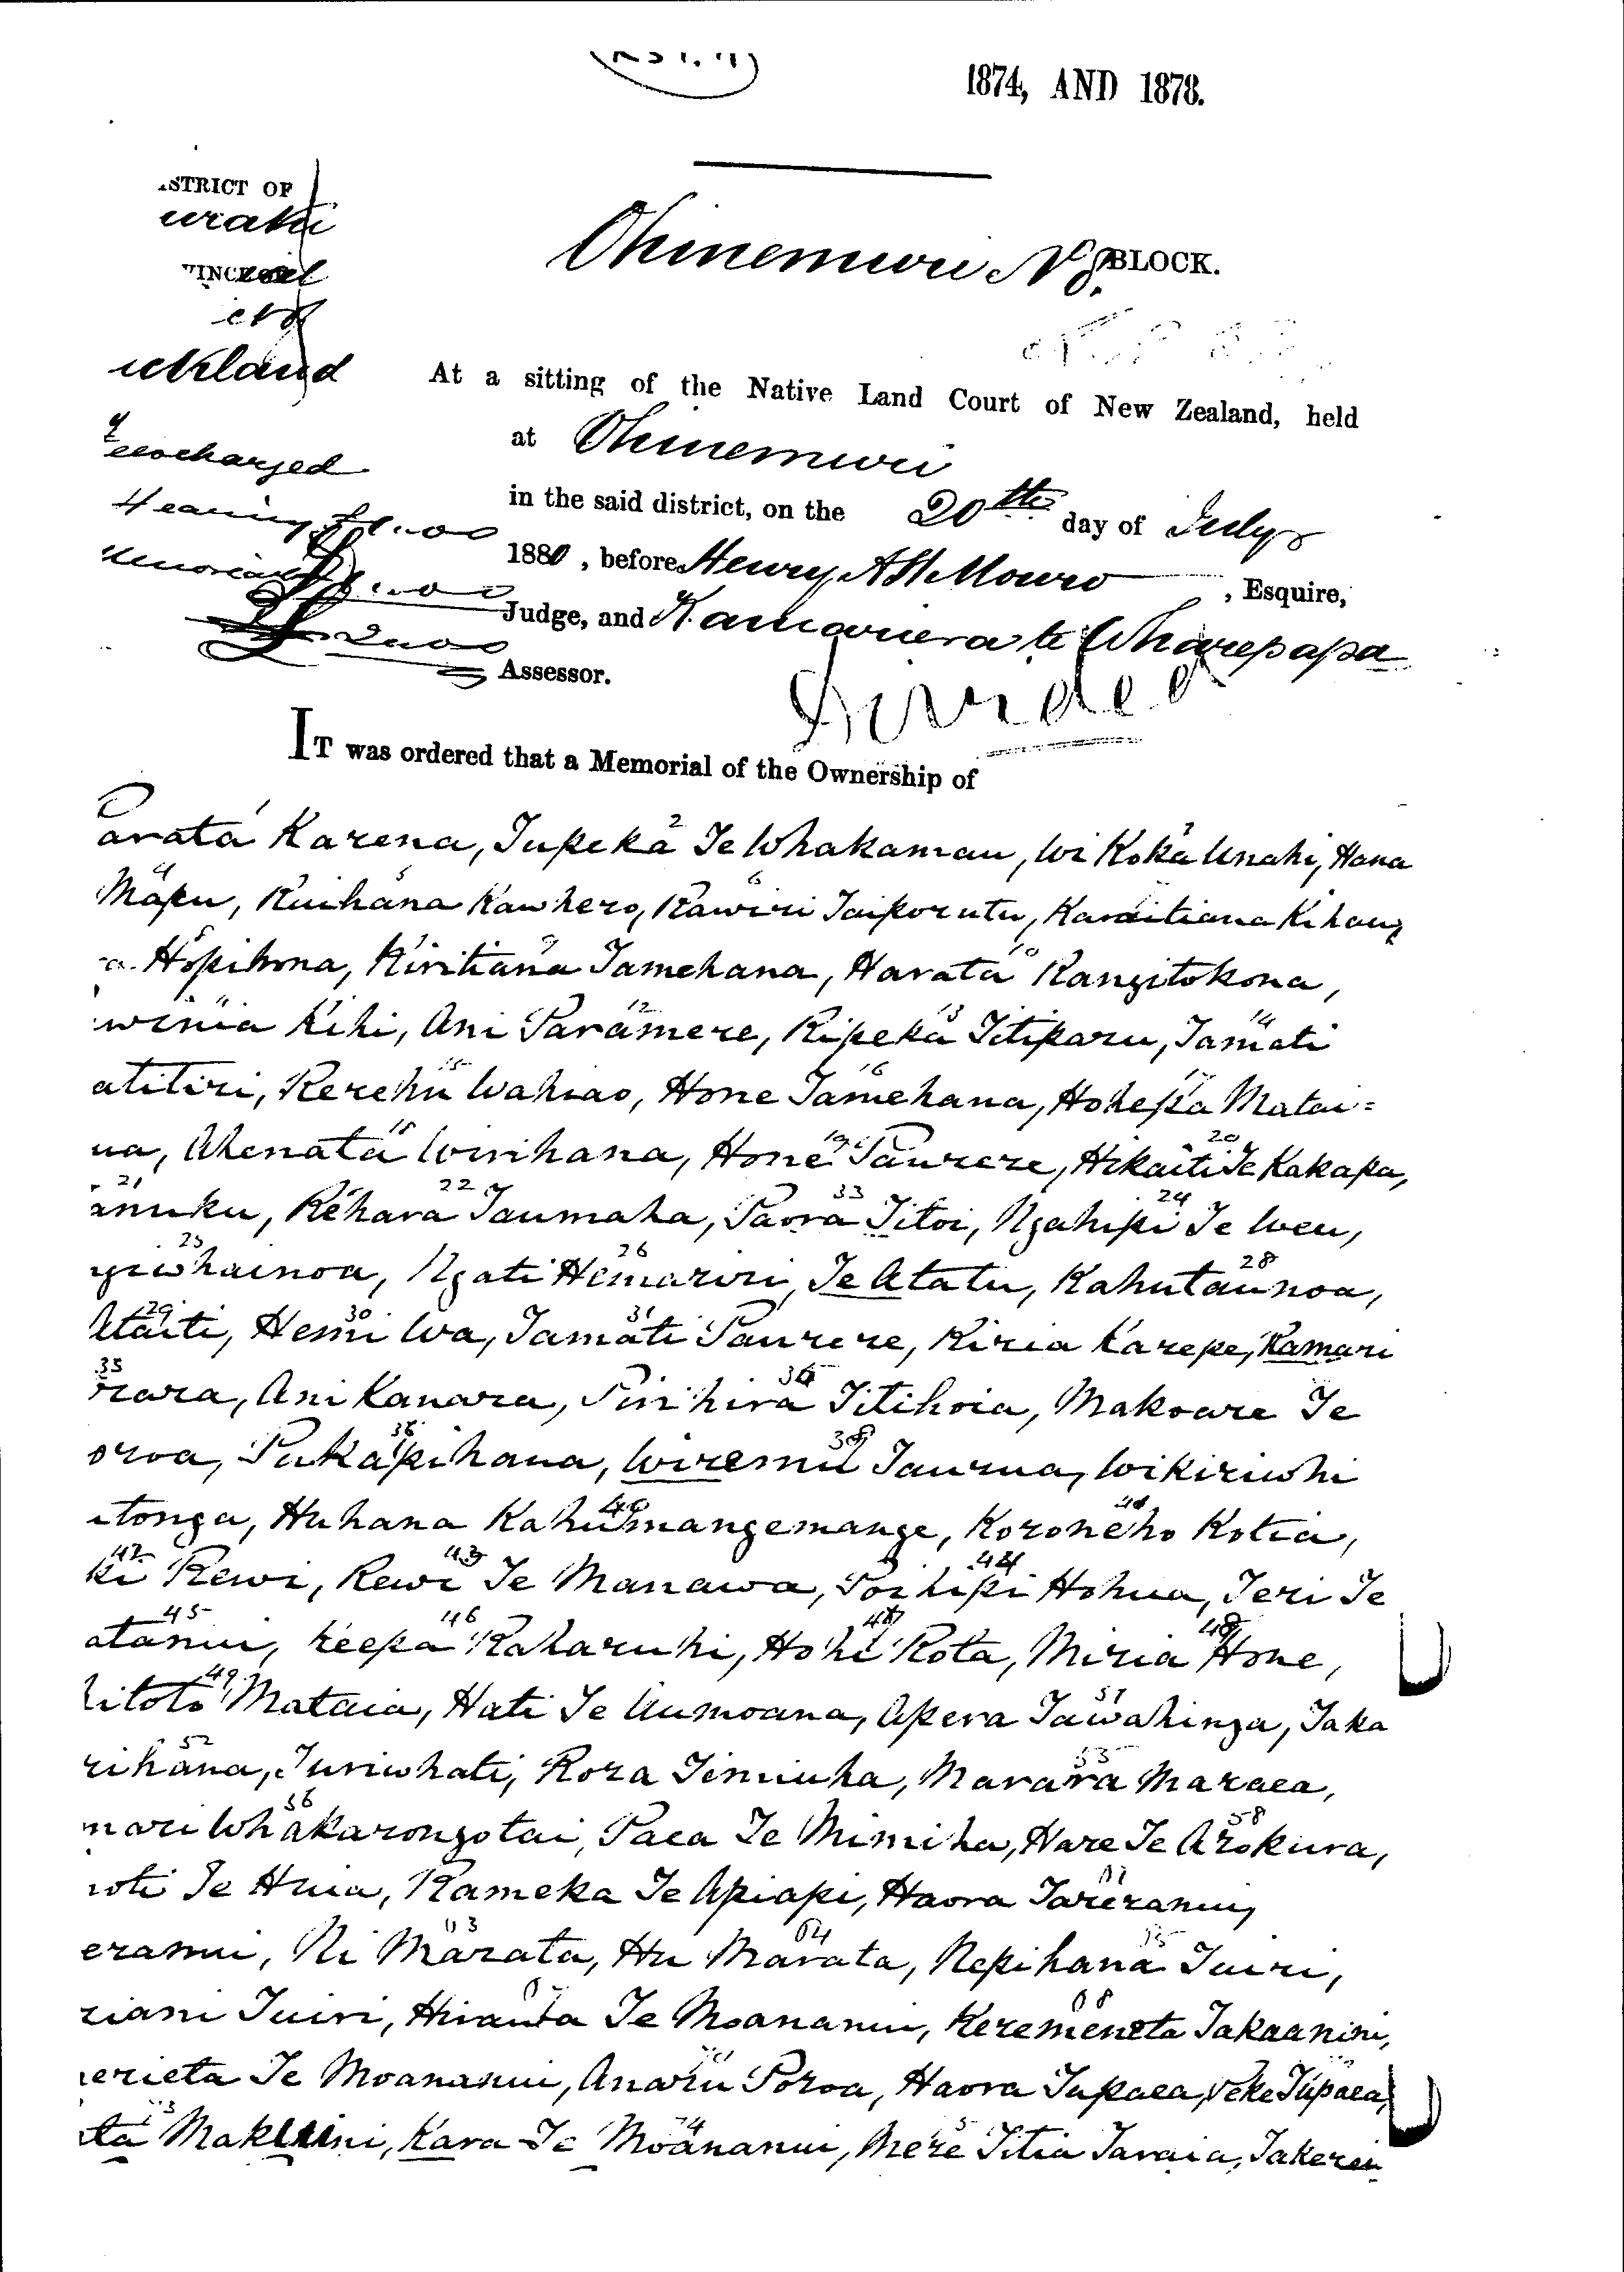 1874, AND 1878.
STRICT OF
uraki
Ohinemuri No 8 BLOCK.
ckland
At a sitting of the Native Land Court of New Zealand, held
at Ohinemuri
charged
in the said district, on the 20th day of July
Hearing
1880, before Henry A H Monro, Esquire,
Judge, and Kamariera te Wharepapa
Assessor.
Divided
IT was ordered that a Memorial of the Ownership of
arata Karena, Tupeka Te Whakamau, Wi Koka Unahi, Hana
Mapu, Ruihana Kawhero, Rawiri Taiporutu, Karaitiana Kihau
a Hopihona, Kiritiana Tamehana, Harata Rangitokona,
winia Kihi, Ani Paramere, Ripeka Titiparu, Tamati
atitiri, Rerehu Wahiao, Hone Tamehana, Hohepa Matai=
ua, Ahenata Wirihana, Hone Paurere, Hikaiti Te Kakapa,
anuku, Rehara Taumaha, Paora Titoi, Ngahipi Te Weu,
whainoa, Ngati Hemariri, Te Atatu, Kahutaunoa,
Ataiti, Hemi Wa, Tamati Paurere, Kiria Karepe, Kamari
rara, Ani Kanara, Pirihira Titihoia, Makoare Te
oroa, Pukapihana, Wiremu Taurua, Wikiriwhi
itonga, Huhana Kahumangemange, Koroneho Kotia,
ki Rewi, Rewi Te Manawa, Poihipi Hohua, Teri Te
atanui, Keepa Raharuhi, Hohi Rota, Miria Hone,
itoto Mataia, Hati Te Aumoana, Apera Tawahinga, Taka
rihana, Turiwhati, Rora Timiuha, Marara Maraea,
mari Whakarongotai, Paea Te Mimiha, Hare Te Arokura,
roti Te Huia, Rameka Te Apiapi, Haora Tareranui,
eranui, Ni Marata, Hu Marata, Nepihana Tuiri,
riani Tuiri, Hirawa Te Moananui, Keremeneta Takaanini,
erieta Te Moananui, Anaru Poroa, Haora Tupaea, Peke Tupaea,
ta Makini, Kara Te Moananui, Mere Titia Taraia, Takerei